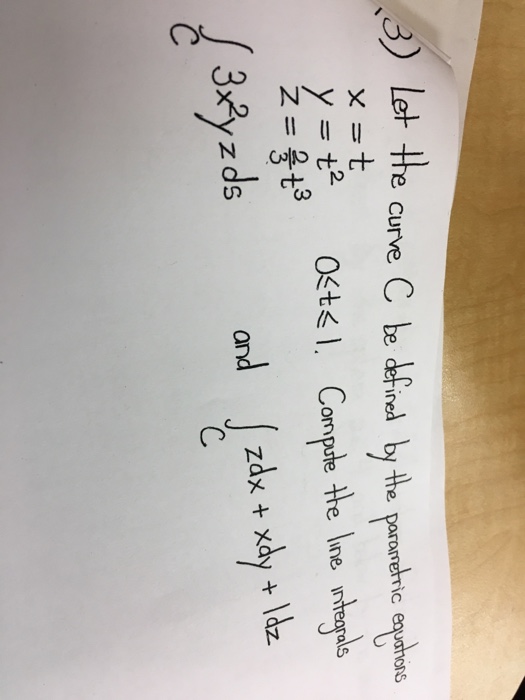 3) Let the curve C be defined by the parametric equations
x = t
y = t²
z = 2/3 t³
0≤t≤1. Compute the line integrals
∫_C 3x²yz ds and ∫_C zdx + xdy + 1dz